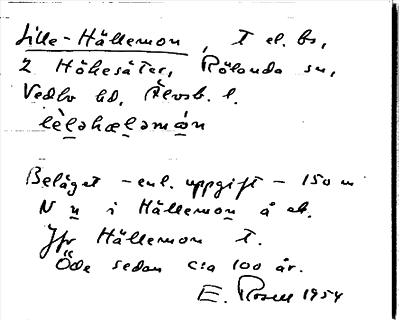 Lille-Hällemon, T el. bs,
2 Hökesäter, Rölanda sn,
Vedbo hd, Älvsb. l.
lèləhæləmón
Beläget – enl. uppgift – 150 m
N u i Hällemon å ek.
Jfr Hällemon T.
Öde sedan c:a 100 år.
E. Rosell 1954